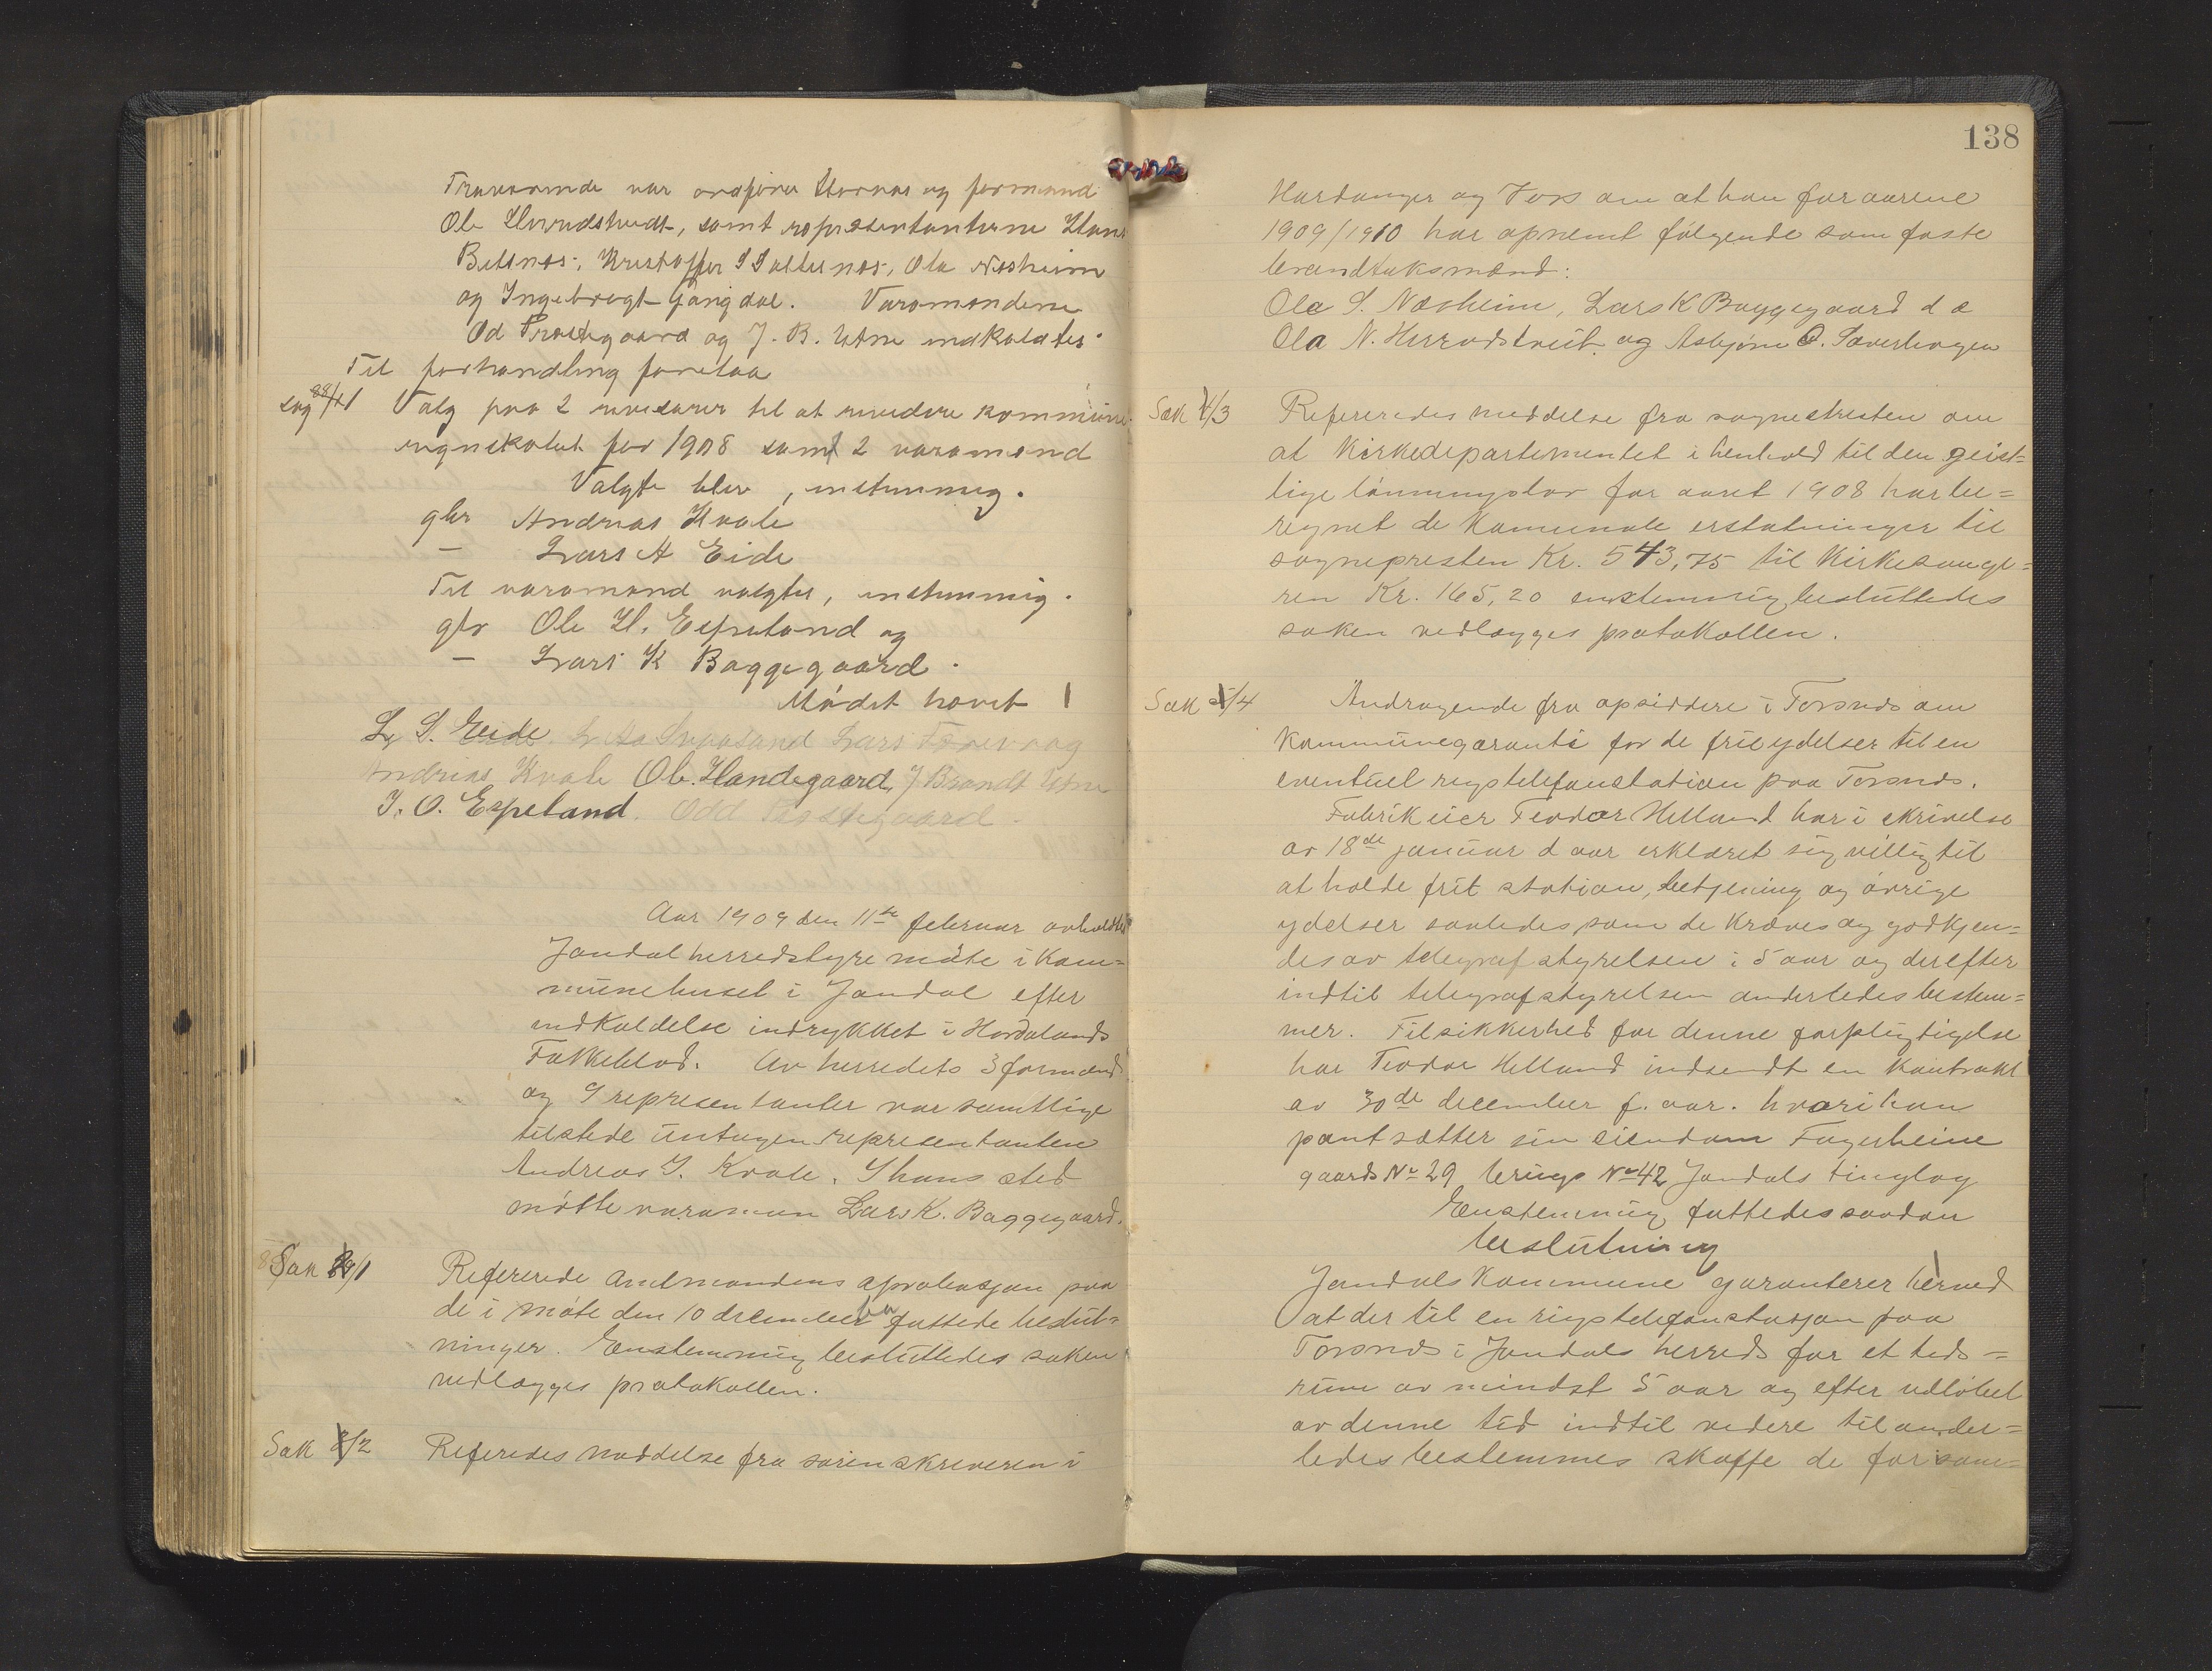 Fraværende var ordfører Utvnæs og formænd
Ole Herredstveit, samt repræsentanterne Hans
Belsnes, Kristoffer S Saltenæs, Ola Næsheim
og Ingebregt Gangdal. Varamændene
Od Prostegaard og J. B. Utne indkaldtes.
Til forhandling foretaa
sag 88/11 Valg paa 2 revisorer til at revidere kommune
regnskabet for 1908 samt 2 varamænd
Valgte blev, enstemmig.
gbr Andreas Kvale
— Lars A Eide
Til varamænd valgtes, enstemmig.
gbr Ole H. Espeland og
— Lars K Baggegaard.
Mødet hævet
L. S. Eide. Lars
Andreas Kvale Ob. Handegaard, J Brandt Utne
J. O. Espeland. Odd Prostegaard.
Aar 1909 den 11te februar avholdtes
Jondal herredstyre møte i Kom=
munehuset i Jondal efter
indkaldelse indrykket i Hordalands
Folkeblad. Av herredets 3 formænd
og 9 representanter var samtlige
tilstede untagen representanten
Andreas J. Kvale. I hans sted
møtte varaman Lars K. Baggegaard.
Sak 1 Refererede Amtmandens aprobasjon paa
de i møte den 10 december fattede beslut=
ninger. Enstemmig besluttedes saken
vedlægges protokollen.
Sak 2 Referedes meddelse fra sorenskriveren i
138
Hardanger og Voss om at han for aarene
1909/1910 har opnemt følgende som faste
brandtaksmænd:
Ola S. Næsheim, Lars K Baggegaard d æ
Ola N. Herredstveit og Asbjørn O. Sæverhagen
Sak 4/3 Refereredes meddelse fra sognepresten om
at Kirkedepartementet i henhold til den geist=
lige lønningslov for aaret 1908 har be=
regnet de Kommunale erstatninger til
sognepresten Kr. 543,75 til Kirkesange=
ren Kr. 165,20 enstemmig besluttedes
saken vedlægges protokollen.
Sak 5/4 Andragende fra opsiddere i Torsnes om
Kommunegaranti for de frie ydelser til en
eventuel rigstelefonstation paa Torsnes.
Fabrikeier Teodor Helland har i skrivelse
av 18de januar d aar erklæret sig villig til
at holde frit station, betjening og øvrige
ydelser saaledes som de kræves og godkjen=
des av telegrafstyrelsen i 5 aar og derefter
indtil telegrafstyrelsen anderledes bestem=
mer. Til sikkerhed for denne forpligtigelse
har Teodor Helland indsendt en Kontrakt
av 30de december f. aar. hvori han
pantsætter sin eiendom Fagerheim
gaards No 29 brugs No 42 Jondals tinglag
Enstemmig fattedes saadan
beslutning
Jondals Kommune garanterer herved
at der til en rigstelefonstasjon paa
Torsnes i Jondals herred for et tids=
rum av mindst 5 aar og efter udløbet
av denne tid indtil videre til ander=
ledes bestemmes skaffe de forsom=